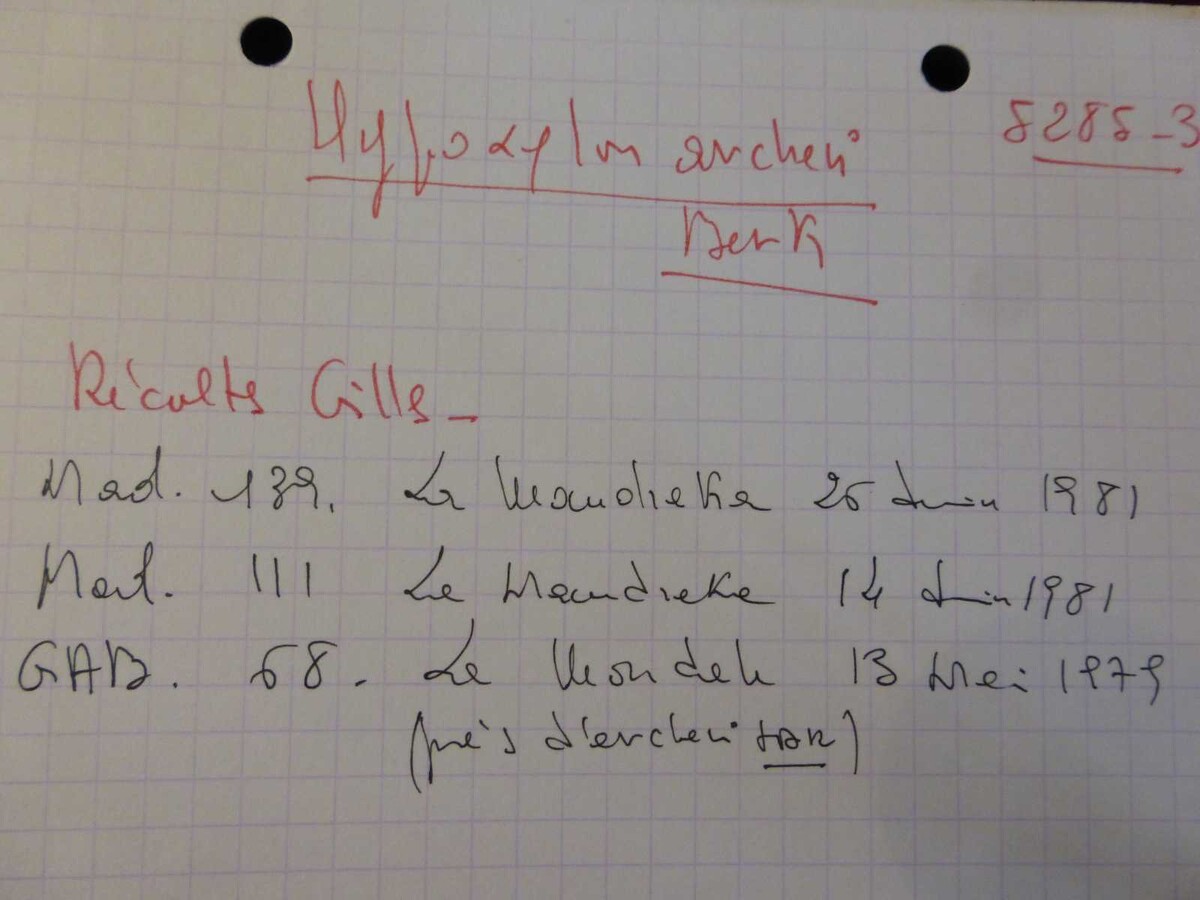 Hypoxylon archeri 5285-3
Berk
Récoltes Gilles -
Mad. 139. La Mandreka 26 Juin 1981
Mad. 111 La Mandreka 14 Juin 1981
GAB. 58. Le Mondah 13 Mai 1979
(près d'archeri